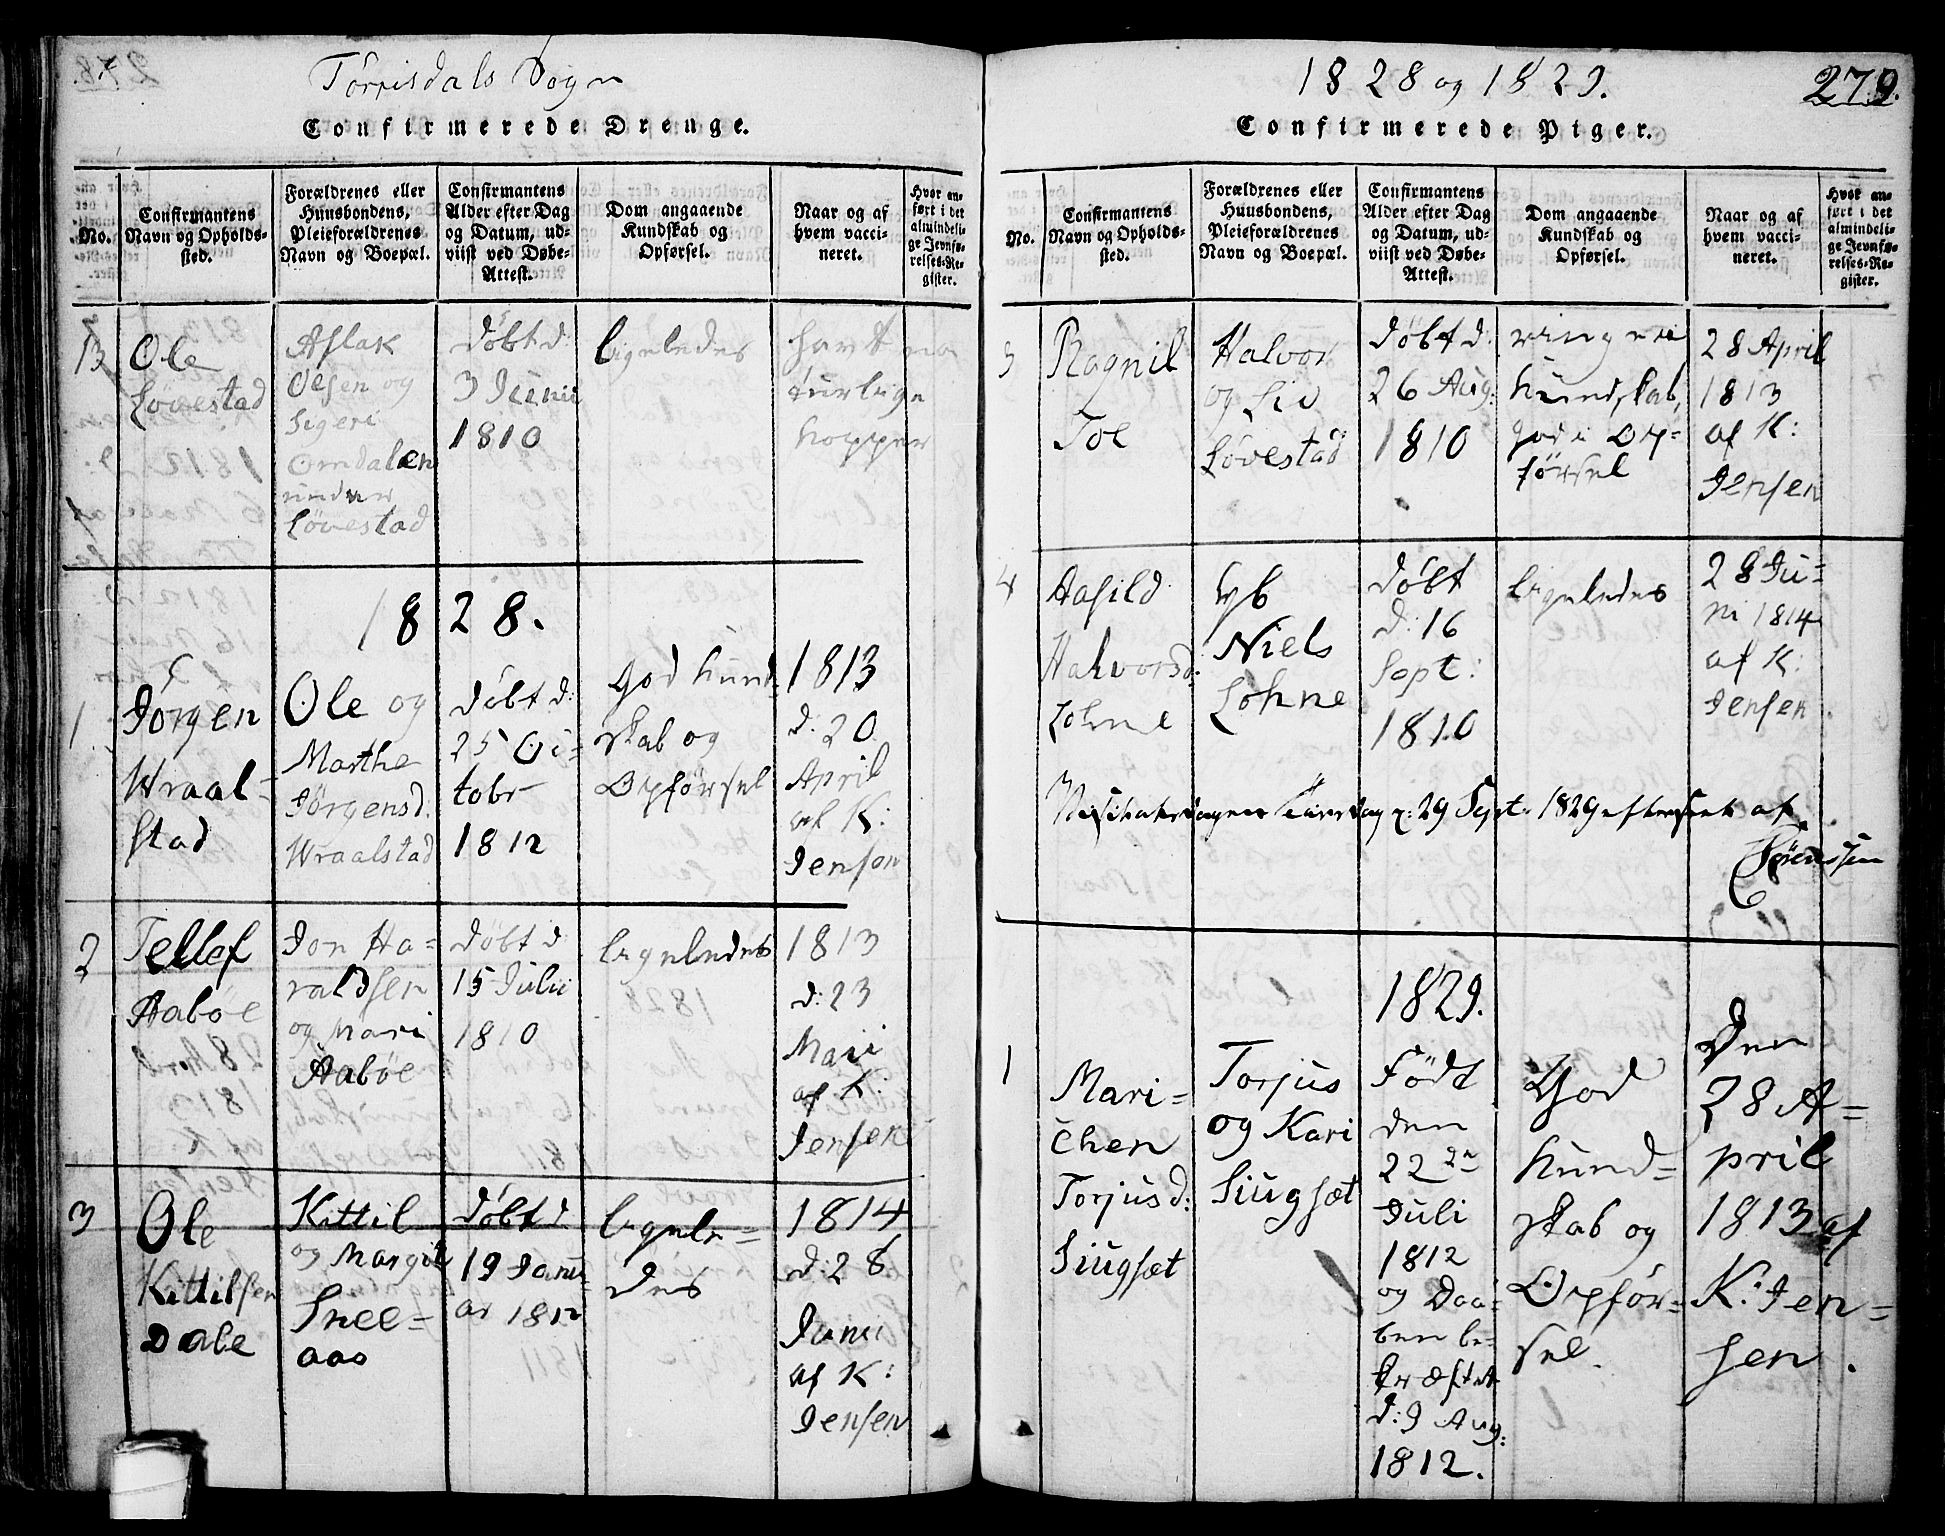 Torrisdals Sogn
Confirmerede Drenge.
No.
Confirmantens
Navn og Opholds-
sted.
Forældrenes eller
Huusbondens,
Pleieforældrenes
Navn og Boepæl.
Confirmantens
Alder efter Dag
og Datum, ud-
viist ved Døbe-
Attest.
Dom angaaende
Kundskab og
Opførsel.
Naar og af
hvem vacci-
neret.
Hvor an-
ført i det
almindeli-
ge Jevnfø-
relses-Re-
gister.
13
Ole
Løvestad
Aslak
Olsen og
Sigeri
Omdalen
under
Løvestad
døbt d:
3 Junii
1810
ligeledes
havt na
turlige
kopper
1828.
1
Jörgen
Wraal-
stad
Ole og
Marthe
Jørgensd.
Wraalstad
døbt d:
25 Oc-
tobr
1812
God Kund-
skab og
Opførsel
1813
d: 20
April
af K:
Jensen
2
Tellef
Aabøe
Jon Ha-
raldsen
og Mari
Aabøe
døbt d
15 Julii
1810
ligeledes
1813
d: 23
Maii
af K:
Jensen
3
Ole
Kittilsen
Dale
Kittil
og Margit
Snee-
aas
døbt d
19 Janu-
ar 1812
ligele-
des
1814
d: 28
Junii
af K:
Jensen
1828 og 1829.
279.
Confirmerede Piger.
No.
Confirmantens
Navn og Opholds-
sted.
Forældrenes eller
Huusbondens,
Pleieforældrenes
Navn og Boepæl.
Confirmantens
Alder efter Dag
og Datum, ud-
viist ved Døbe-
Attest.
Dom angaaende
Kundskab og
Opførsel.
Naar og af
hvem vacci-
neret.
Hvor an-
ført i det
almindeli-
ge Jevnfø-
relses-Re-
gister.
3
Ragnil
Toe
Halvor
og Liv
Løvestad
døbt d:
26 Aug:
1810
ringere
Kundskab,
god i Op-
førsel
28 April
1813
af K:
Jensen
4
Aasild
Halvorsd:
Lohne
Niels
Lohne
døbt
d: 16
Sept:
1810
ligeledes
28 Ju-
ni 1814
af K:
Jensen
29 Sept. 1829 efterseet af
1829.
1
Mari-
chen
Torjusd:
Siugsæt
Torjus
og Kari
Siugsæt
Född
den
22 de
Juli
1812
og Daa-
ben be-
kræftet
d: 9 Aug:
1812.
God
Kund-
skab og
Opfør-
sel.
Den
28 A-
pril
1813 af
K: Jen-
sen.